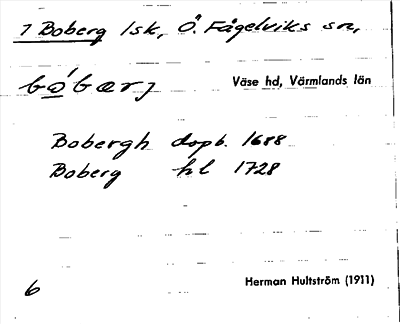 7 Boberg lsk, Ö. Fågelviks sn,
bo̲´bærj Väse hd, Värmlands län
Bobergh dopb. 1688
Boberg hl 1728
6 Herman Hultström (1911)